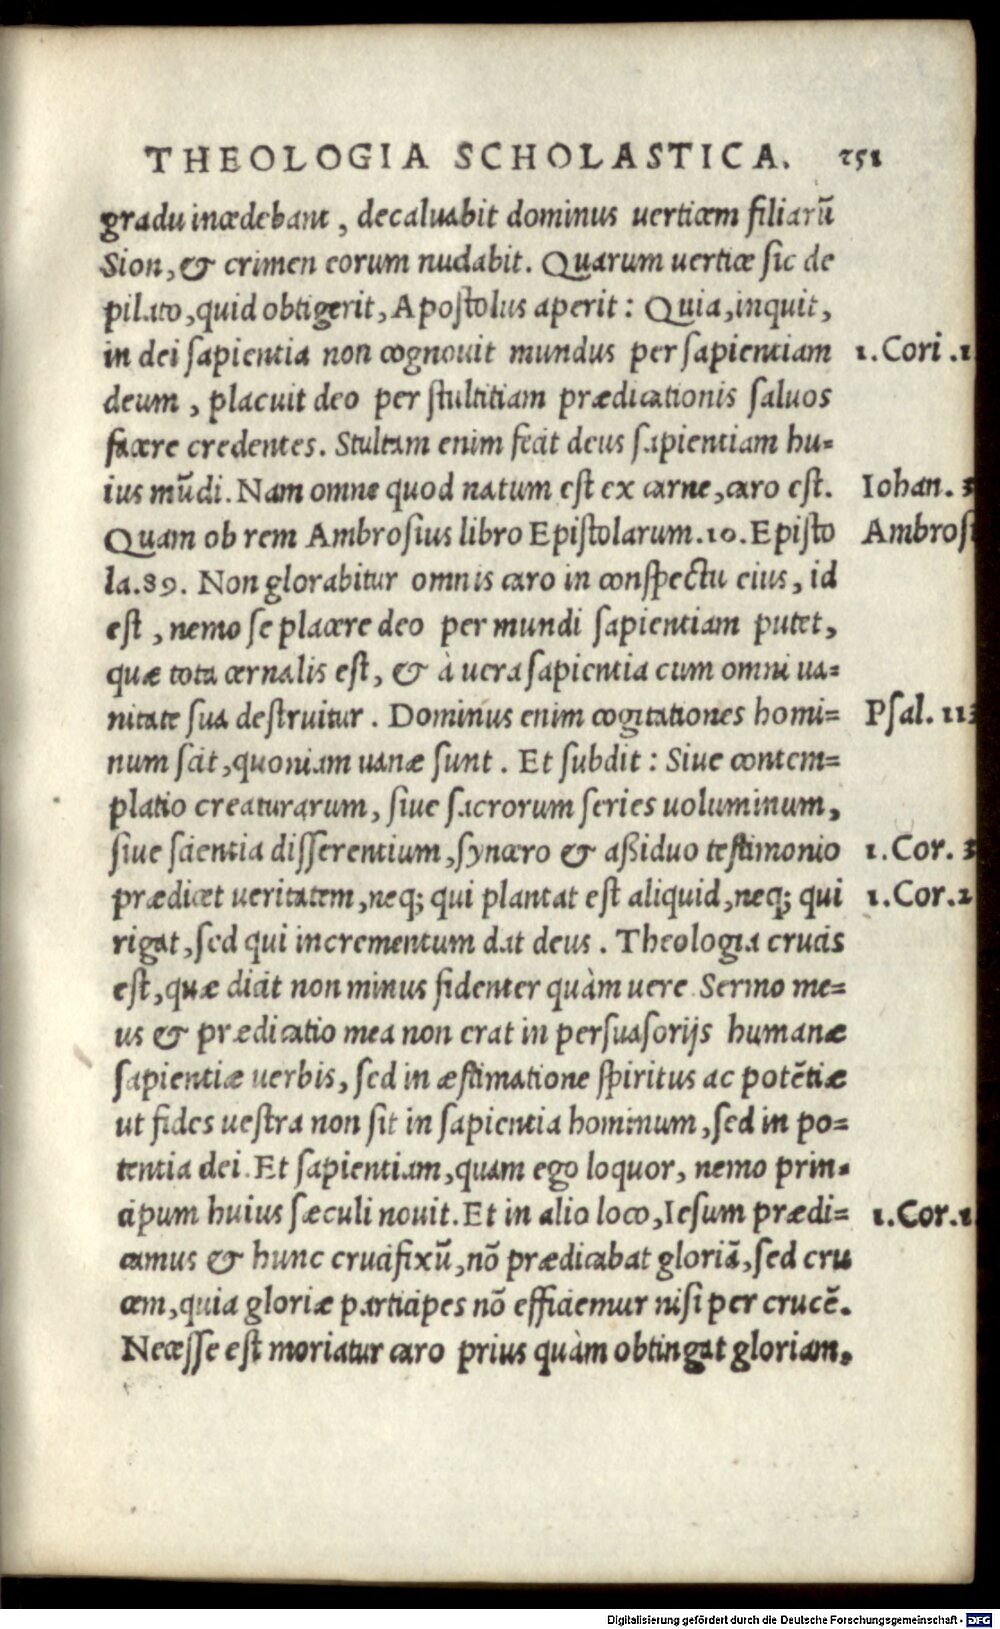 THEOLOGIA SCHOLASTICA. 251
gradu incedebant, decaluabit dominus uerticem filiarū
Sion, & crimen eorum nudabit. Quarum uertice sic de
pilato, quid obtigerit, Apostolus aperit: Quia, inquit,
in dei sapientia non cognouit mundus per sapientiam 1. Cori. 1
deum, placuit deo per stultitiam prædicationis saluos
facere credentes. Stultam enim fecit deus sapientiam hu=
ius mūdi. Nam omne quod natum est ex carne, caro est. Iohan. 3
Quam ob rem Ambrosius libro Epistolarum.10. Episto Ambrosi
la.89. Non glorabitur omnis caro in conspectu eius, id
est, nemo se placere deo per mundi sapientiam putet,
quæ tota cernalis est, & à uera sapientia cum omni ua=
nitate sua destruitur. Dominus enim cogitationes homi= Psal. 113
num scit, quoniam uanæ sunt. Et subdit: Siue contem=
platio creaturarum, siue sacrorum series uoluminum,
siue scientia disserentium, syncero & aßiduo testimonio 1. Cor. 3
prædicet ueritatem, neq; qui plantat est aliquid, neq; qui 1. Cor. 2
rigat, sed qui incrementum dat deus. Theologia crucis
est, quæ dicit non minus fidenter quàm uere Sermo me=
us & prædicatio mea non erat in persuasorijs humanæ
sapientiæ uerbis, sed in æstimatione spiritus ac potētiæ
ut fides uestra non sit in sapientia hominum, sed in po=
tentia dei. Et sapientiam, quam ego loquor, nemo prin=
cipum huius sæculi nouit. Et in alio loco, Iesum prædi= 1. Cor. 1
camus & hunc crucifixū, nō prædicabat gloriā, sed cru
cem, quia gloriæ participes nō efficiemur nisi per crucē.
Necesse est moriatur caro prius quàm obtingat gloriam,
Digitalisierung gefördert durch die Deutsche Forschungsgemeinschaft - DFG